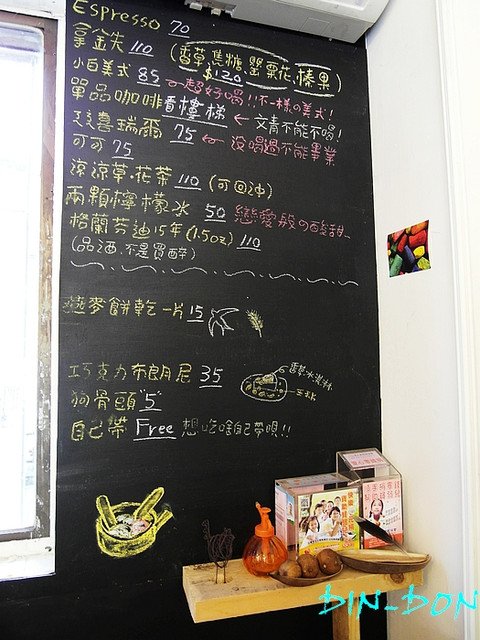 Espresso 70
拿鐵 110 (香草.焦糖.罌粟花.榛果)
$120
小白美式 85 ← 超好喝!!不一樣の美式!
單品咖啡看樓梯 ← 文青不能不喝!
玫喜瑞爾 75 ← 沒喝過不能畢業
可可 75
涼涼草.花茶 110 (可回沖)
兩顆檸檬氷 50 戀愛般の酸甜
格蘭芬迪15年(1.5oz) 110
(品酒.不是買醉)
燕麥餅乾一片 15
巧克力布朗尼 35
香草冰淇淋
狗骨頭 "5"
自己帶 Free 想吃啥自己帶唄!!
DIN-DON